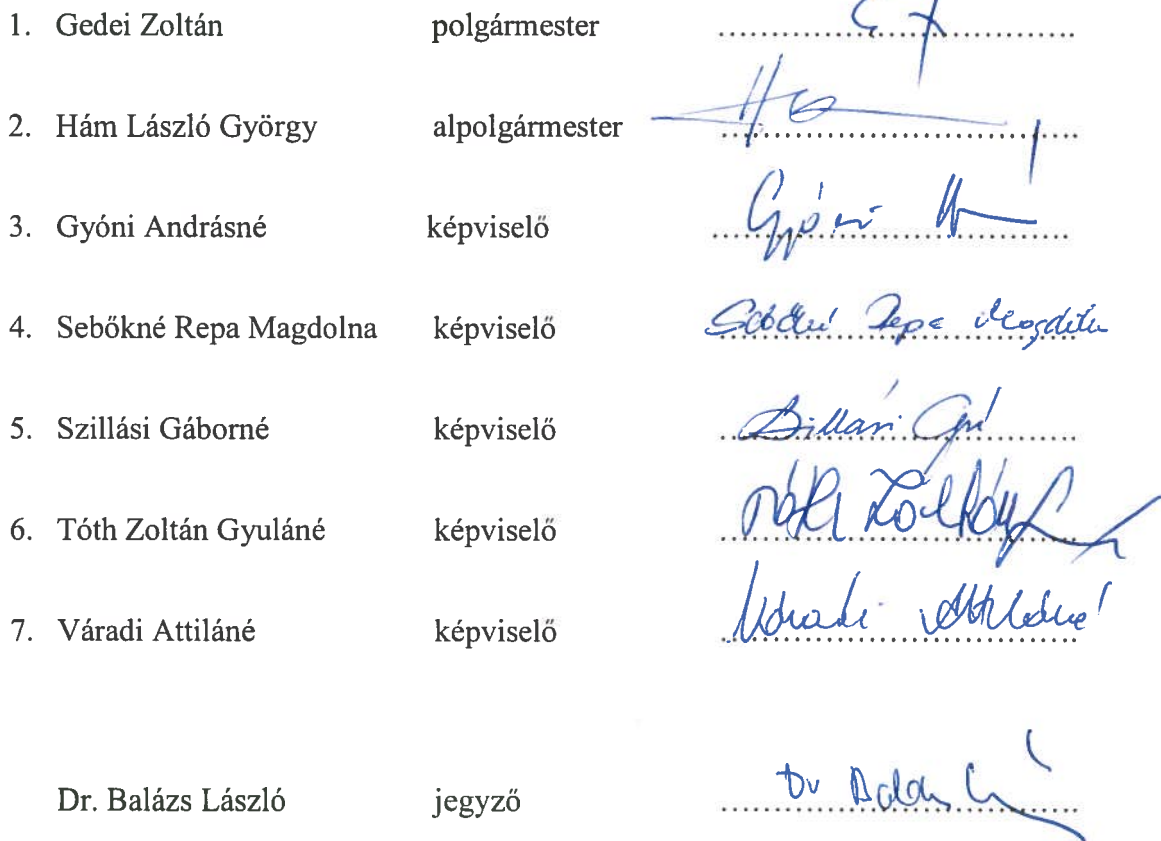 1. Gedei Zoltán polgármester
2. Hám László György alpolgármester
3. Gyóni Andrásné képviselő Gyóni
4. Sebőkné Repa Magdolna képviselő Sebőkné Repa Magdolna
5. Szillási Gáborné képviselő Szillási
6. Tóth Zoltán Gyuláné képviselő Tóth Zoltán
7. Váradi Attiláné képviselő Váradi Attiláné
Dr. Balázs László jegyző Dr Balázs